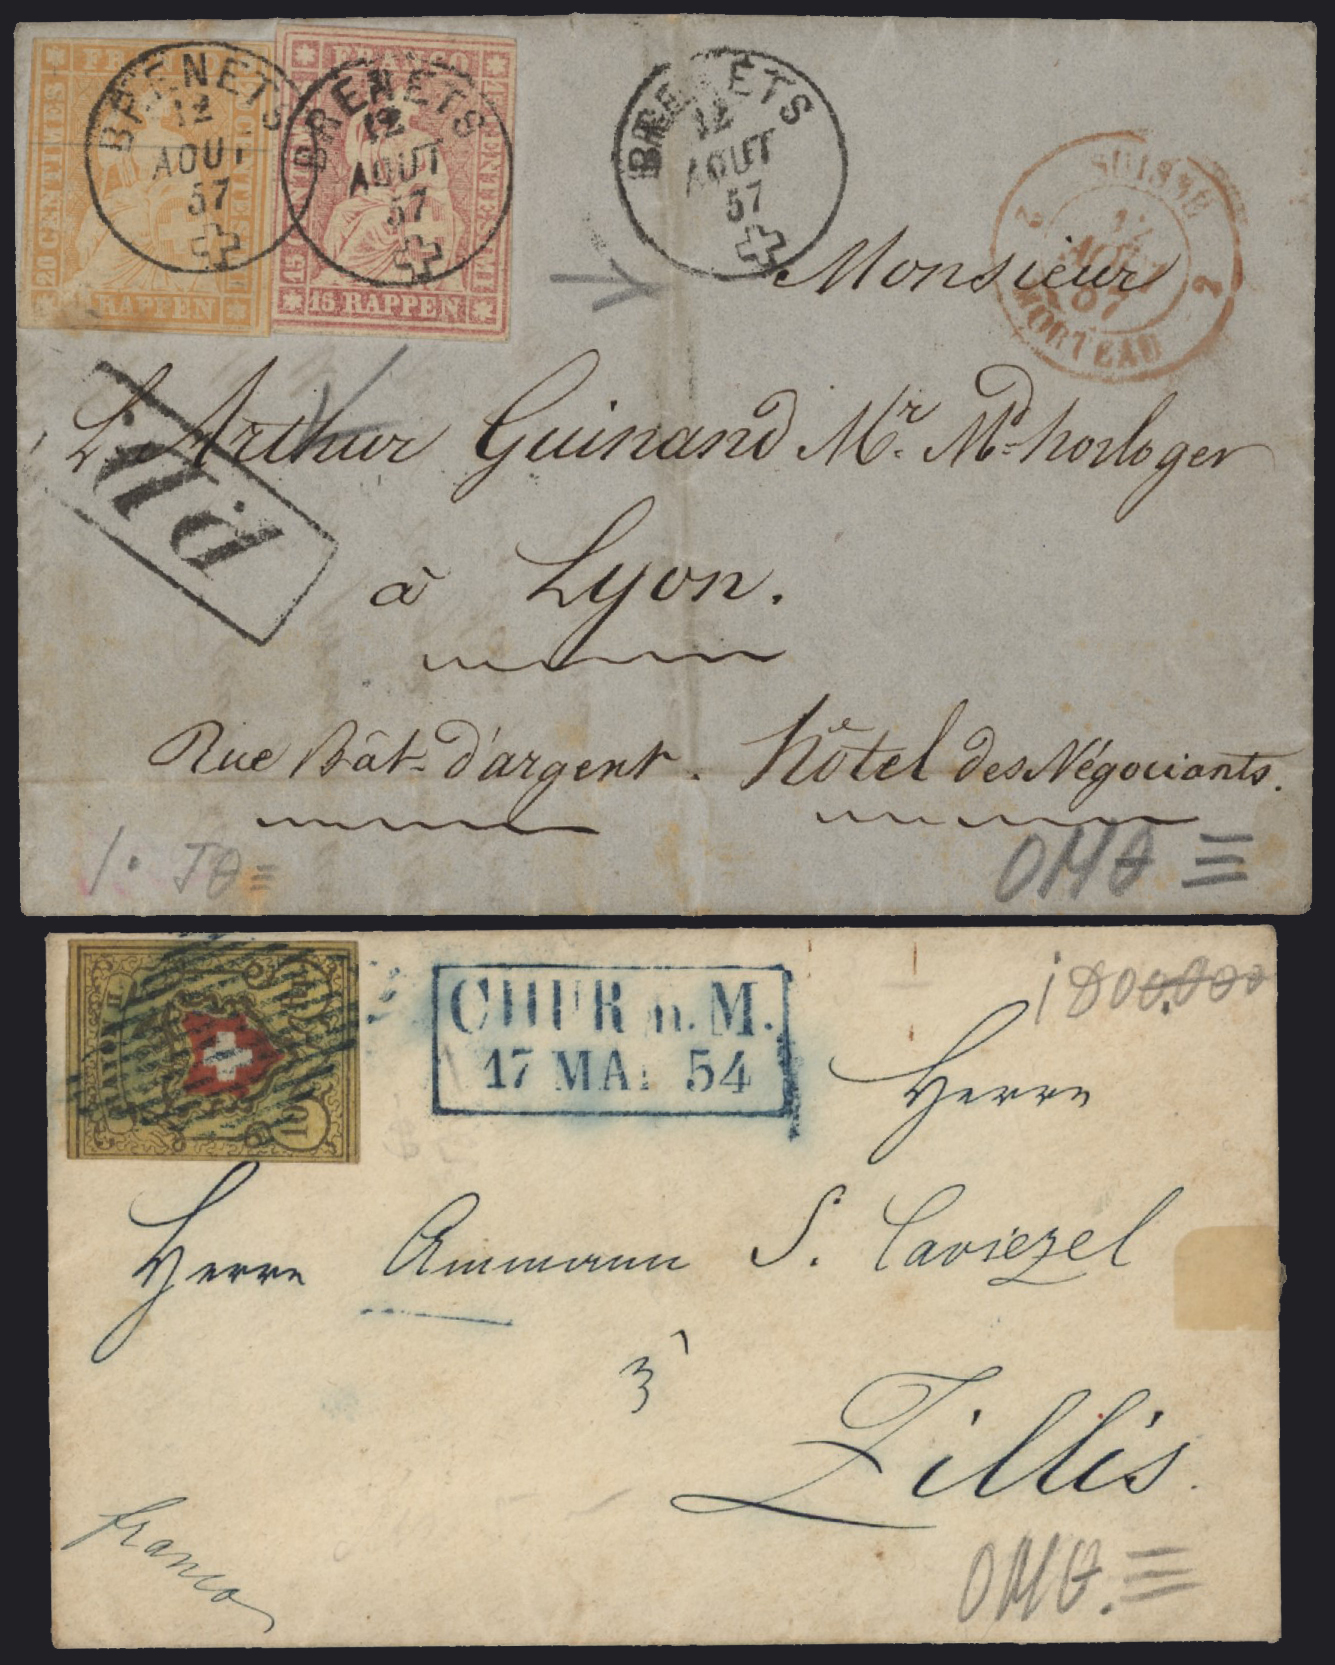 FRANCO
20 CENTIMES
RAPPEN
FRANCO
15 RAPPEN
BRENETS
12
AOUT
57
BRENETS
12
AOUT
57
BRENETS
12
AOUT
57
SUISSE
12
AOUT
57
MORTEAU
2
2
Monsieur
L. Arthur Guinand Mr. Md. horloger
P.D.
à Lyon.
Rue Bât-d'argent. Hôtel des Négociants.
CHUR n. M.
17 MAI 54
Herrn
Herrn Ammann S. Caviezel
Zillis.
franco